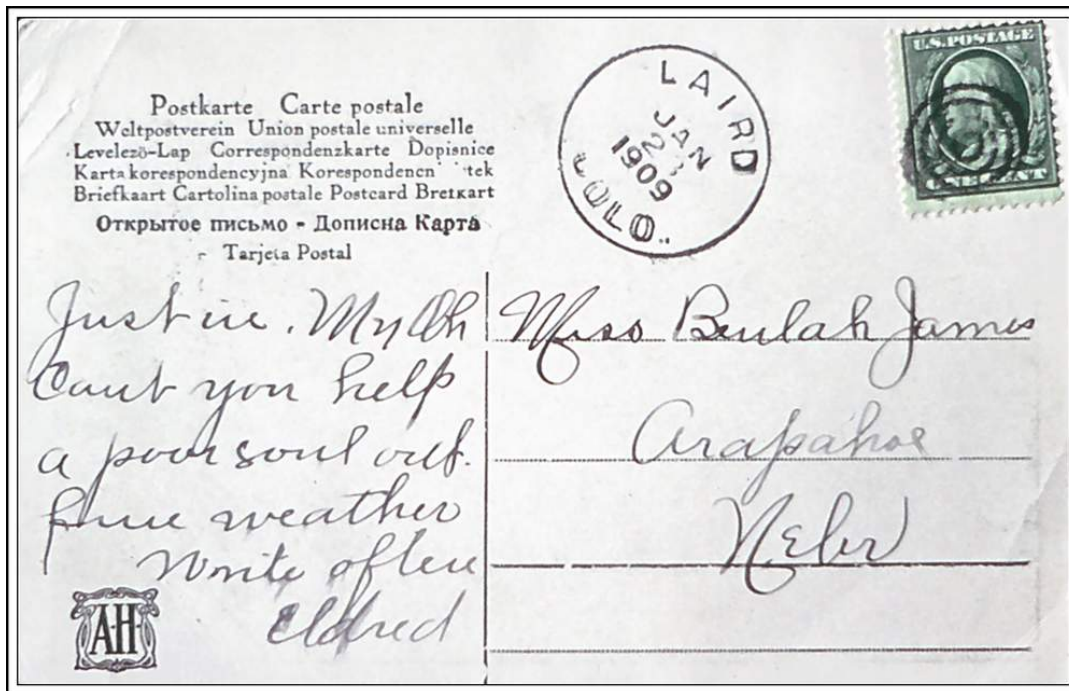 Postkarte Carte postale
Weltpostverein Union postale universelle
Levelező-Lap Correspondenzkarte Dopisnice
Karta korespondencyjna tek
Briefkaart Cartolina postale Postcard Brefkart
Открытое письмо - Дописна Карта
Tarjeta Postal
LAIRD
JAN
1909
COLO.
U.S. POSTAGE
ONE CENT
Just in. My Oh
Cant you help
a poor soul out.
fine weather
Write often
Eldred
A.H.
Miss Beulah James
Arapahoe
Nebr